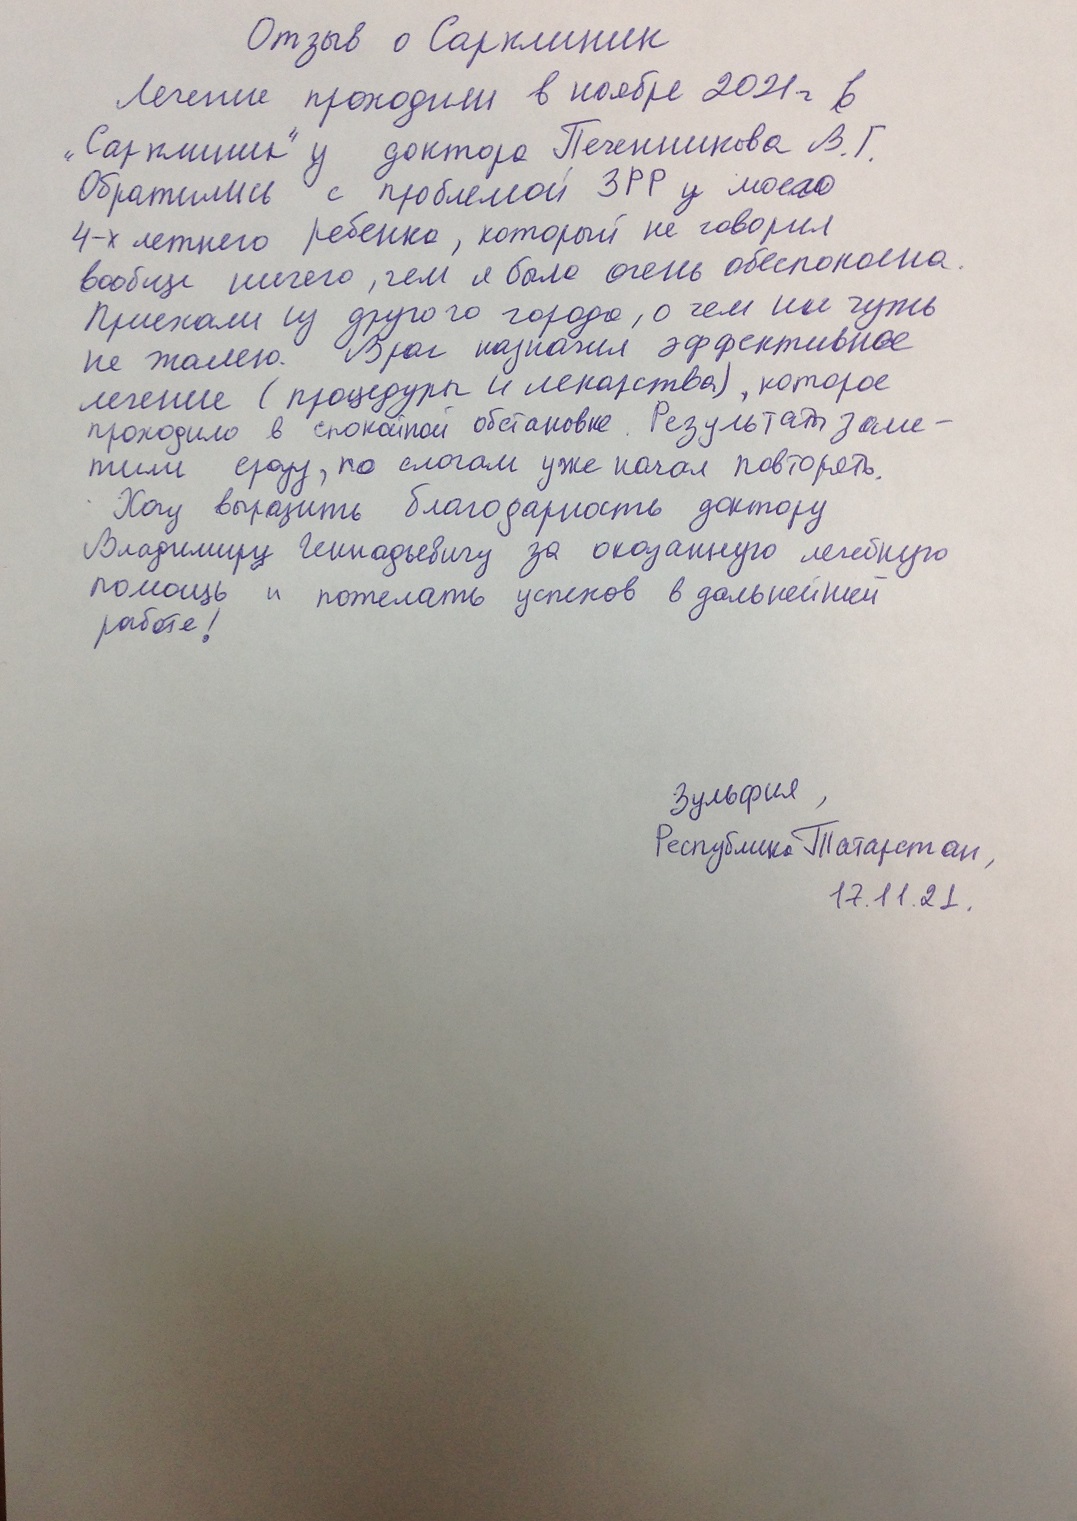 Отзыв о Сарклиник
Лечение проходили в ноябре 2021 г в
„Сарклиник" у доктора Печенникова В.Г.
Обратились с проблемой ЗРР у моего
4-х летнего ребенка, который не говорил
вообще ничего, чем я была очень обеспокоена.
Приехали из другого города, о чем ни чуть
не жалею. Врач назначил эффективное
лечение (процедуры и лекарства), которое
проходило в спокойной обстановке. Результат заме-
тили сразу, по слогам уже начал повторять.
Хочу выразить благодарность доктору
Владимиру Геннадьевичу за оказанную лечебную
помощь и пожелать успехов в дальнейшей
работе!
Зульфия,
Республика Татарстан,
17.11.21.